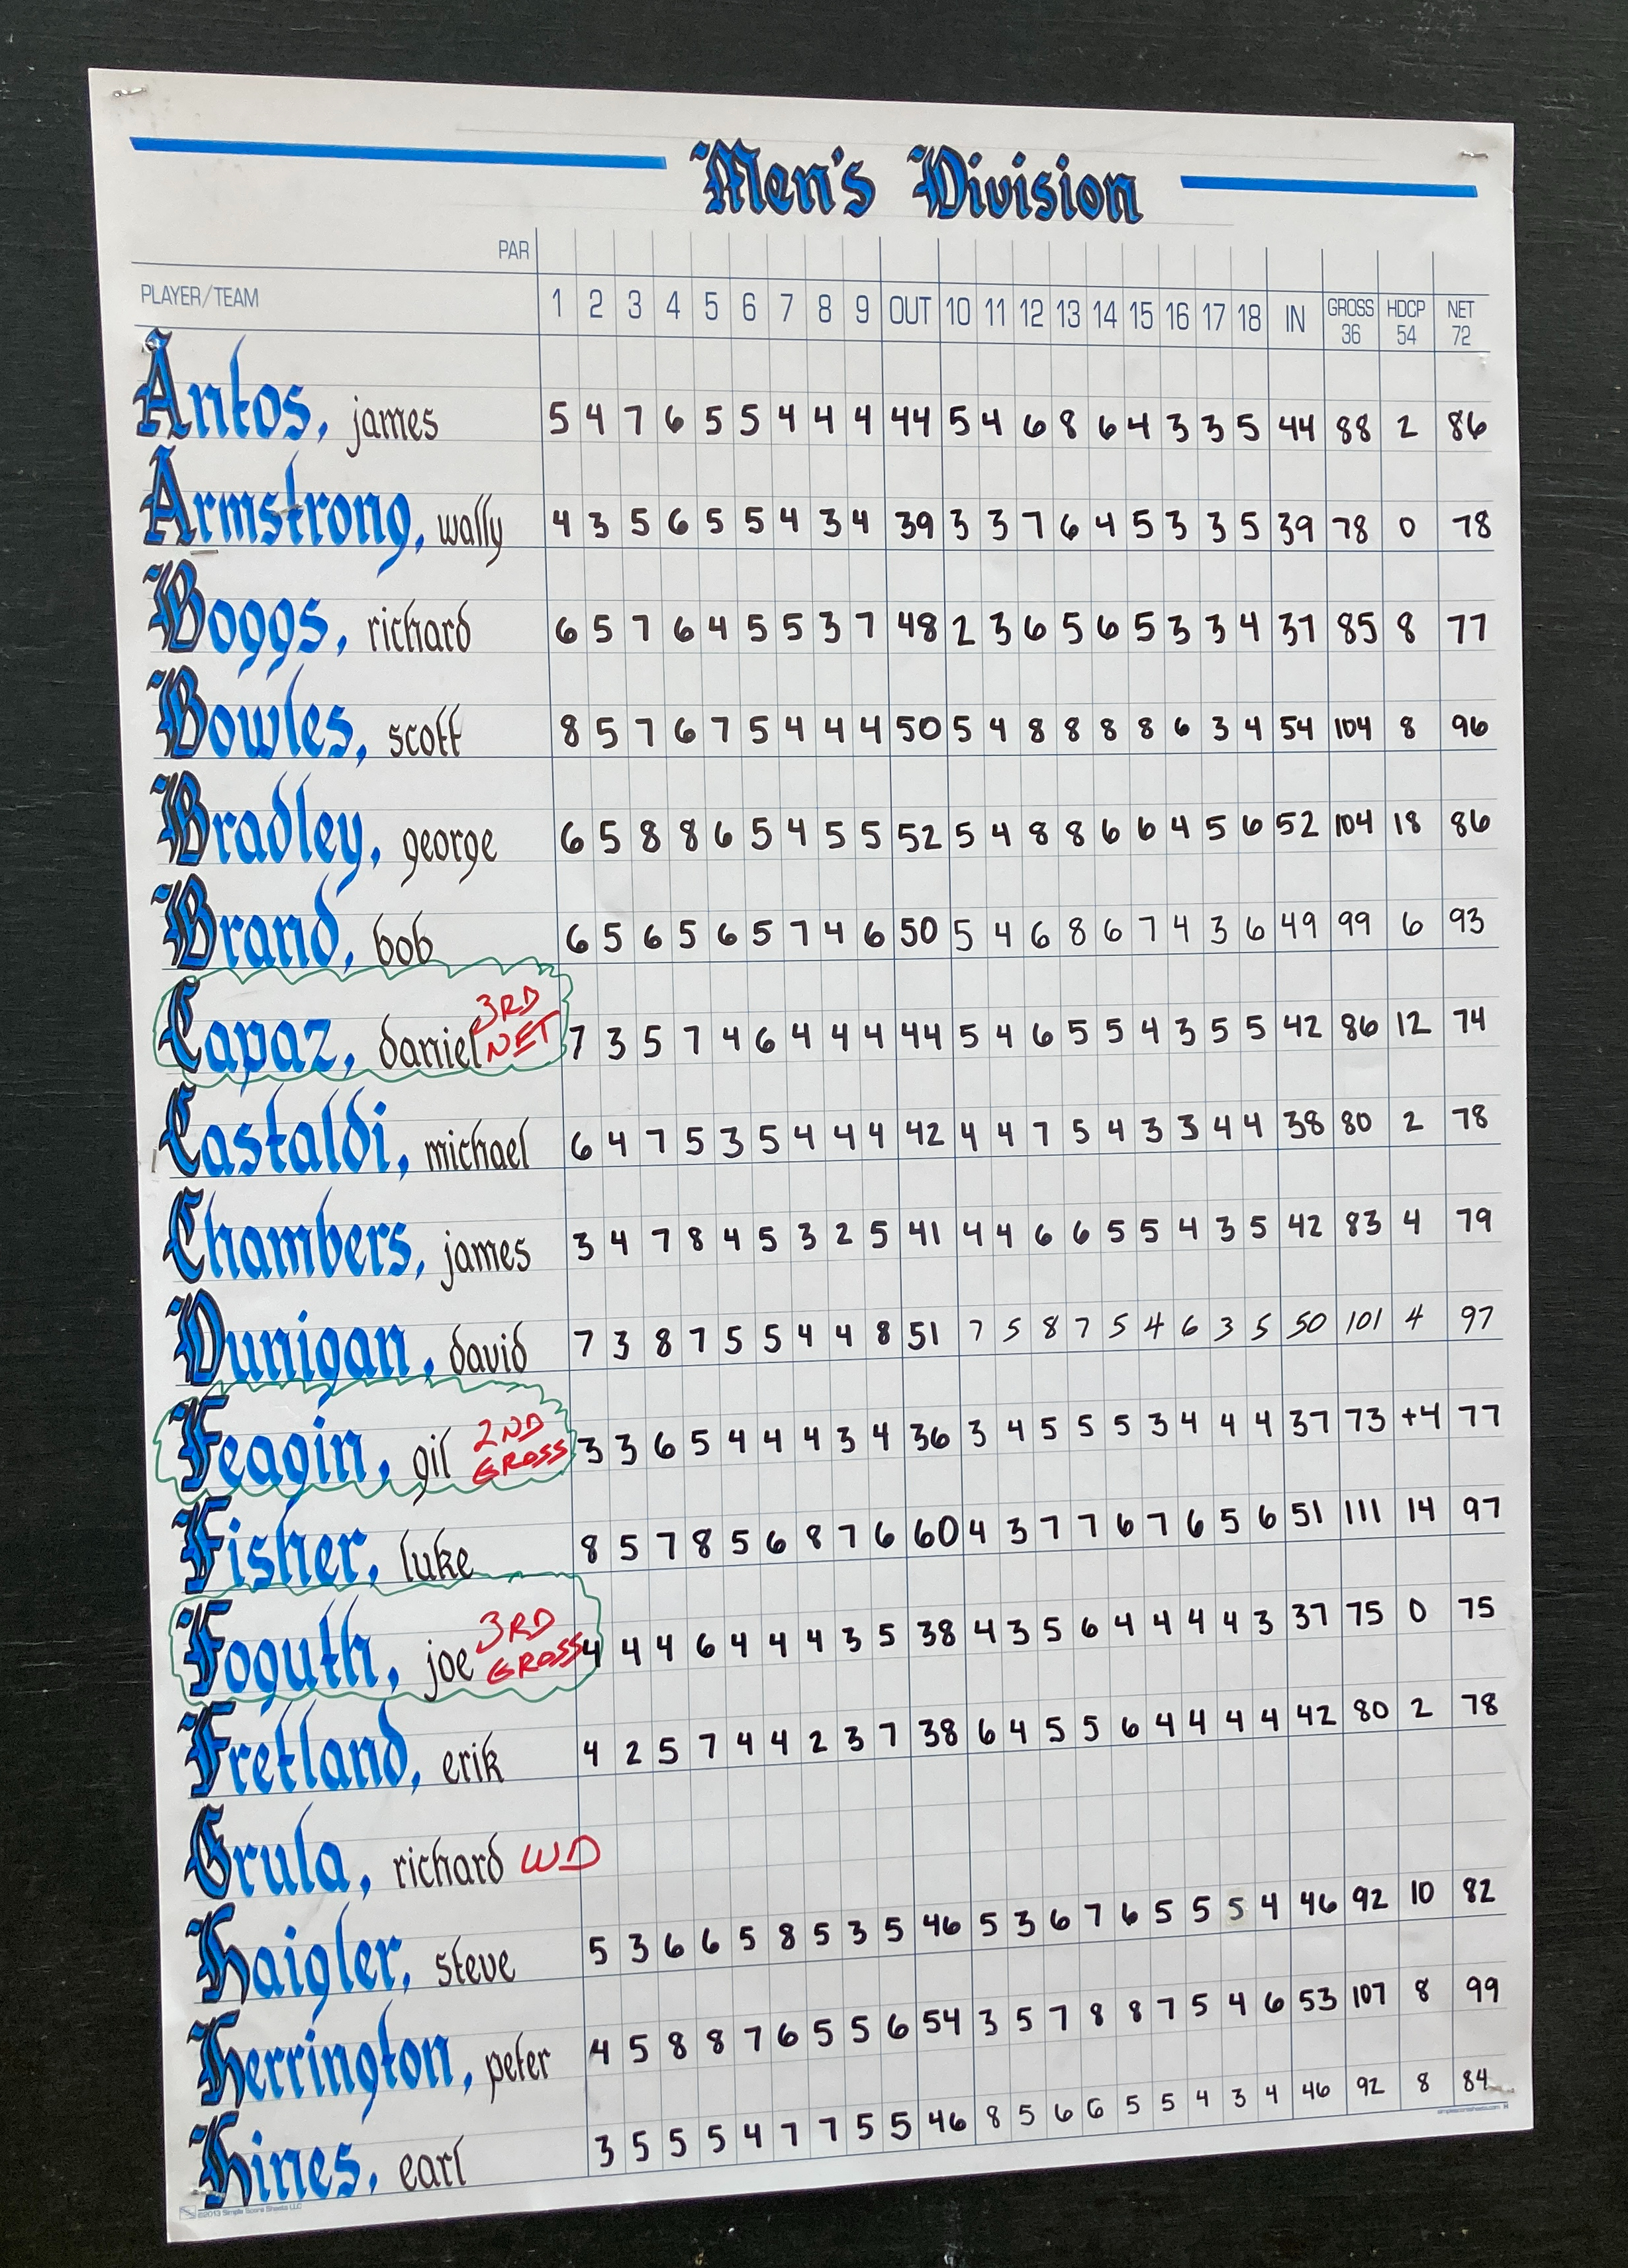 Men's Division
PAR
PLAYER/TEAM 1 2 3 4 5 6 7 8 9 OUT 10 11 12 13 14 15 16 17 18 IN GROSS 36 HDCP 54 NET 72
Antos, james 5 4 7 6 5 5 4 4 4 44 5 4 6 8 6 4 3 3 5 44 88 2 86
Armstrong, wally 4 3 5 6 5 5 4 3 4 39 3 3 7 6 4 5 3 3 5 39 78 0 78
Boggs, richard 6 5 7 6 4 5 5 3 7 48 2 3 6 5 6 5 3 3 4 37 85 8 77
Bowles, scott 8 5 7 6 7 5 4 4 4 50 5 4 8 8 8 8 6 3 4 54 104 8 96
Bradley, george 6 5 8 8 6 5 4 5 5 52 5 4 8 8 6 6 4 5 6 52 104 18 86
Brand, bob 6 5 6 5 6 5 7 4 6 50 5 4 6 8 6 7 4 3 6 49 99 6 93
Capaz, daniel 3RD NET 7 3 5 7 4 6 4 4 4 44 5 4 6 5 5 4 3 5 5 42 86 12 74
Castaldi, michael 6 4 7 5 3 5 4 4 4 42 4 4 7 5 4 3 3 4 4 38 80 2 78
Chambers, james 3 4 7 8 4 5 3 2 5 41 4 4 6 6 5 5 4 3 5 42 83 4 79
Dunigan, david 7 3 8 7 5 5 4 4 8 51 7 5 8 7 5 4 6 3 5 50 101 4 97
Feagin, gil 2ND GROSS 3 3 6 5 4 4 4 3 4 36 3 4 5 5 5 3 4 4 4 37 73 +4 77
Fisher, luke 8 5 7 8 5 6 8 7 6 60 4 3 7 7 6 7 6 5 6 51 111 14 97
Foguth, joe 3RD GROSS 4 4 4 6 4 4 4 3 5 38 4 3 5 6 4 4 4 4 3 37 75 0 75
Fretland, erik 4 2 5 7 4 4 2 3 7 38 6 4 5 5 6 4 4 4 4 42 80 2 78
Grula, richard WD
Haigler, steve 5 3 6 6 5 8 5 3 5 46 5 3 6 7 6 5 5 5 4 46 92 10 82
Herrington, peter 4 5 8 8 7 6 5 5 6 54 3 5 7 8 8 7 5 4 6 53 107 8 99
Hines, earl 3 5 5 5 4 7 7 5 5 46 8 5 6 6 5 5 4 3 4 46 92 8 84
©2013 Simple Score Sheets LLC
simplescoresheets.com